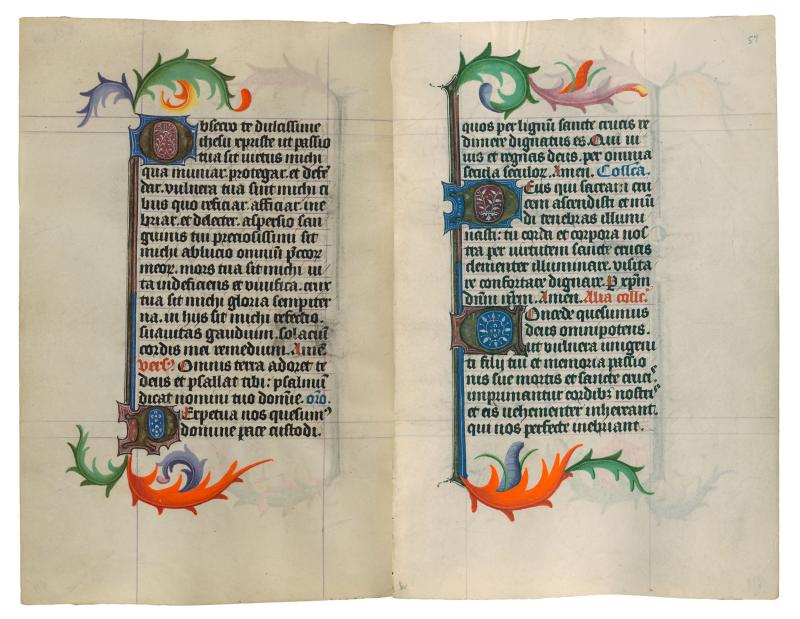 Obsecro te dulcissime
ihesu christe ut passio
tua sit virtus michi
qua muniar. protegar. et defē
dar. vulnera tua sint michi ci
bus quo reficiar. afficiar. ine
briar. et delecter. aspersio san
guinis tui preciosissimi sit
michi ablucio omniū pccōr
meor. mors tua sit michi ui
ta indeficiens et vivifica. crux
tua sit michi gloria sempiter
na. in hys sit michi refectio.
suavitas gaudium. solaciū
cordis mei remedium. Amē.
vers9 Omnis terra adoret te
deus et psallat tibi: psalmū
dicat nomini tuo domīe. oro.
Perpetua nos quesum9
domine pace custodi.
57
quos per lignū sancte crucis re
dimere dignatus es. Qui ui
uis et regnas deus. per omnia
secula seculor. Amen. Collcā.
Deus qui sacrām cru
cem ascendisti et mūn
di tenebras illumi
nasti: tu corda et corpora nos
tra per virtutem sancte crucis
clementer illuminare. visita
re confortare dignare. P xpm
dnm nrm. Amen. Alia collc.
Concede quesumus
deus omnipotens.
ut vulnera unigeni
ti filij tui et memoria passio
nis sue mortis et sancte cruci9
imprimantur cordibz nostri9
et eis uehementer inhereant.
qui nos perfecte inebriant.